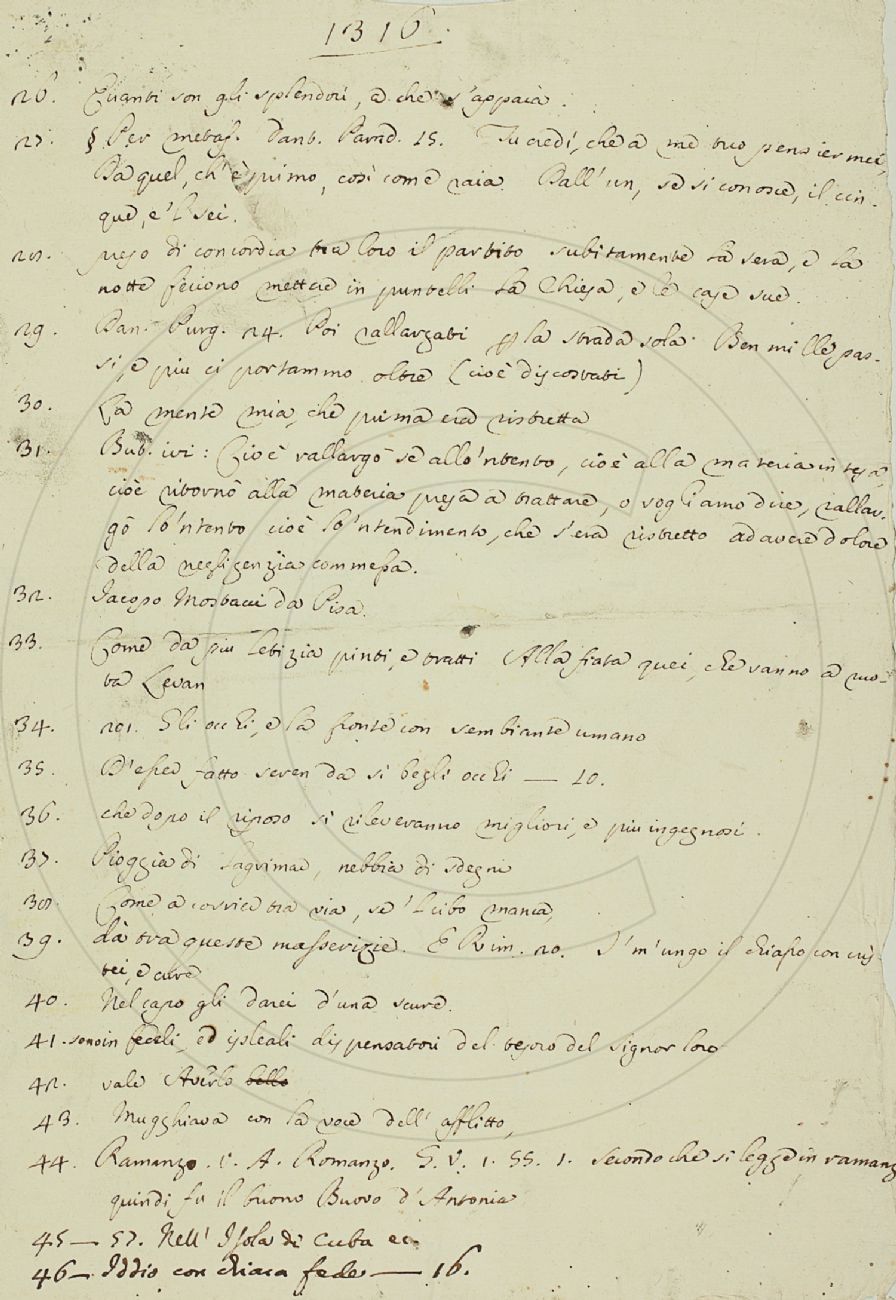 1316.
26. Quanti son gli splendori, a che s'appaia.
27. § Per metaf. Dant. Parad. 15. Tu credi, che a me tuo pensier mei,
Da quel, ch'è primo, così come raia Dall'un, se si conosce, il cin-
que, e 'l sei.
28. preso di concordia tra loro il partito subitamente la sera, e la
notte feciono mettere in puntelli la Chiesa, e le case sue.
29. Dan. Purg. 24. Poi rallargati la strada sola Ben mille pas-
si, e piu ci portammo oltre (cioè discostati)
30. La mente mia, che prima era ristretta
31. But. ivi: Cioè rallargò se allo 'ntento, cioè alla materia intesa,
cioè ritornò alla materia presa a trattare, o vogliamo dire, rallar-
gò lo 'ntento cioè lo 'ntendimento, che s'era ristretto ad avere dolore
della negligenzia commessa.
32. Iacopo Mostacci da Pisa.
33. Come da piu letizia pinti, e tratti Alla fiata quei, che vanno a ruo-
ta Levan
34. 201. Gli occhi, e la fronte con sembiante umano
35. D'esser fatto seren da si begli occhi — 10.
36. che dopo il riposo si rileveranno migliori, e piu ingegnosi.
37. Pioggia di lagrimar, nebbia di sdegni
38. Come a corrier tra via, se 'l cibo manca,
39. dà tra queste masserizie. E Rim. 20. I' m'ungo il chiasso con cris-
tei, e cure
40. Nel capo gli darei d'una scure.
41. sono infedeli, ed isleali dispensatori del tesoro del signor loro
42. vale Averlo bello
43. Mugghiava con la voce dell'afflitto,
44. Ramanzo. V. A. Romanzo. G. V. 1. 55. 1. Secondo che si legge in ramanz
quindi fu il buono Buovo d'Antonia
45 — 57. Nell'Isola di Cuba ec.
46 — Iddio con chiara fede — 16.